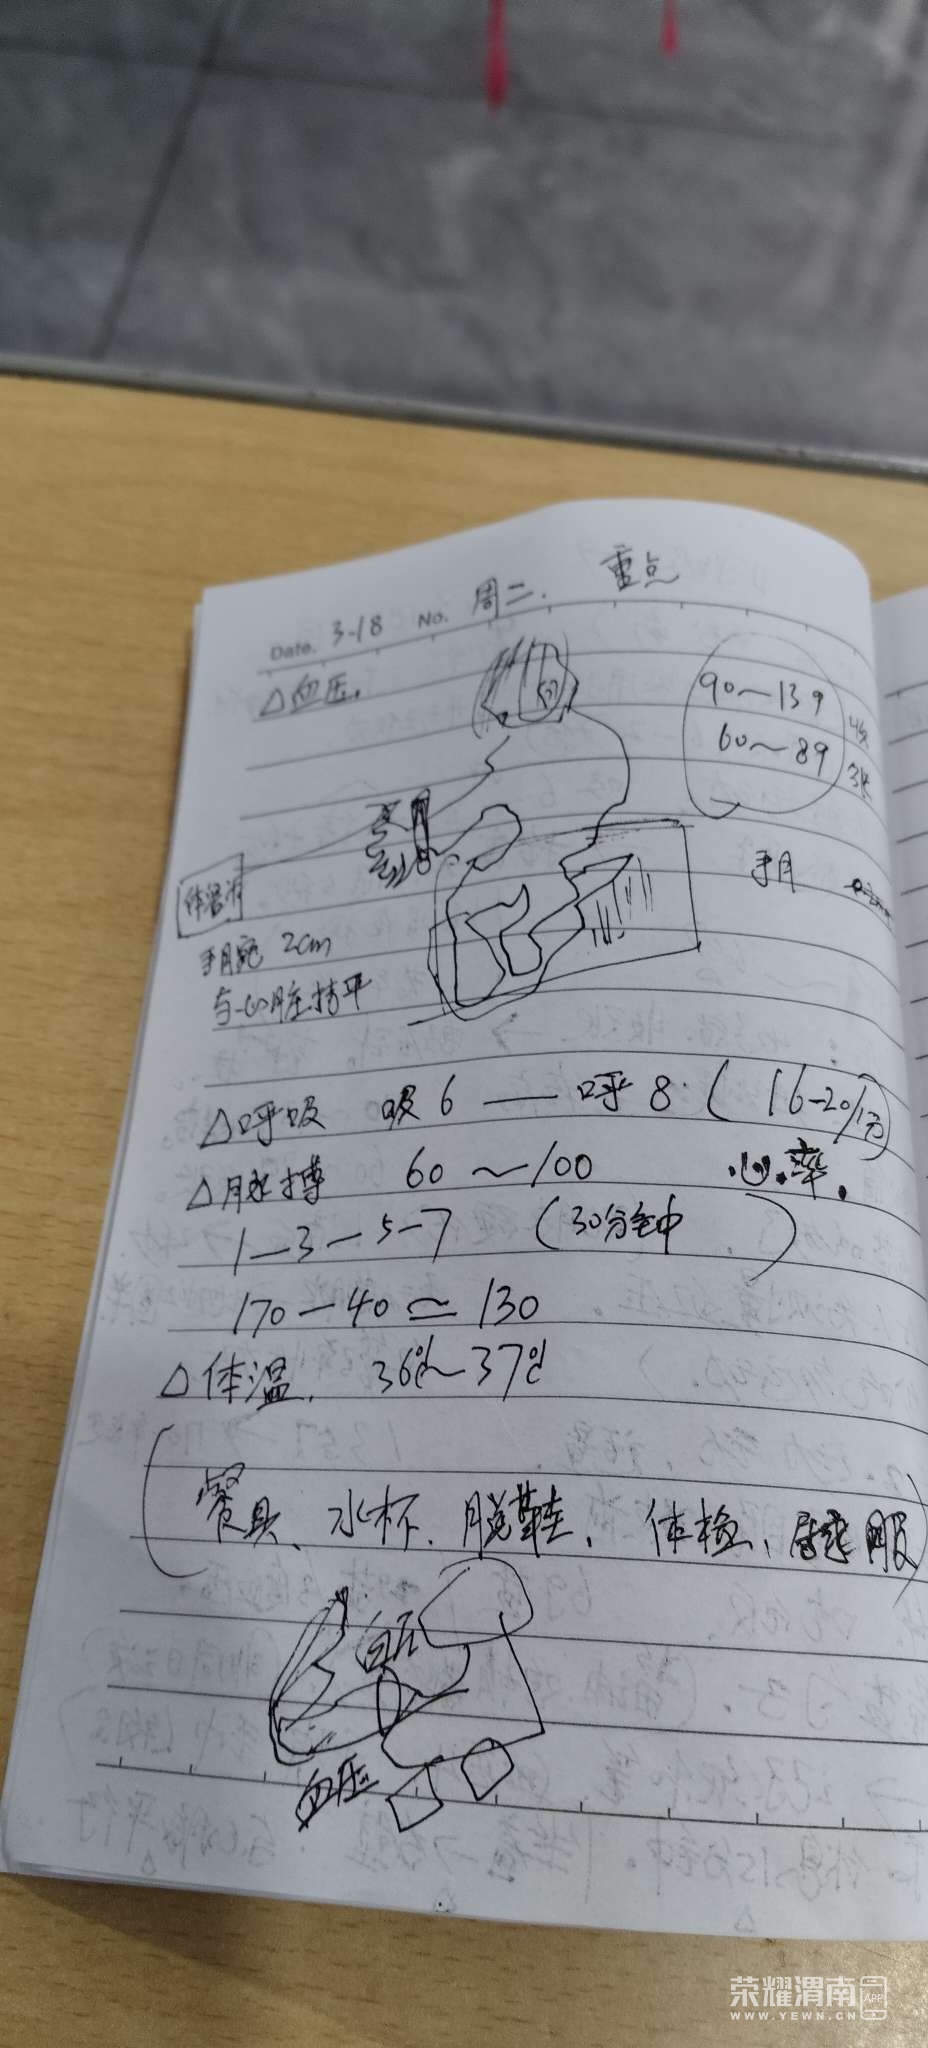 重点
Date. 3-18 No. 周二.
△血压.
90～139
60～89
体温计
手腕 2cm
与心脏持平
△呼吸 吸6 — 呼8 (16-20/1分)
△脉搏 60～100 心率.
1-3-5-7 (30分钟)
170-40=130
△体温. 36℃～37℃
(餐具、水杯、脱鞋、体检、睡服)
血压
血压
荣耀渭南 APP
WWW.YEWN.CN